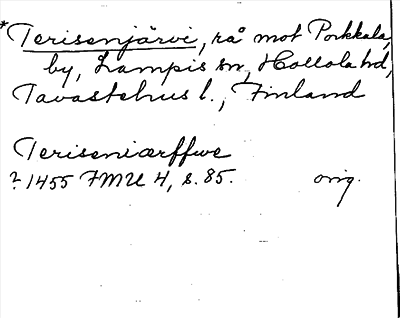 *Terisenjärvi, rå mot Porkkala
by, Lampis sn, Hollola hd,
Tavastehus l., Finland
Teriseniærffwe
? 1455 FMU 4, s. 85. orig.